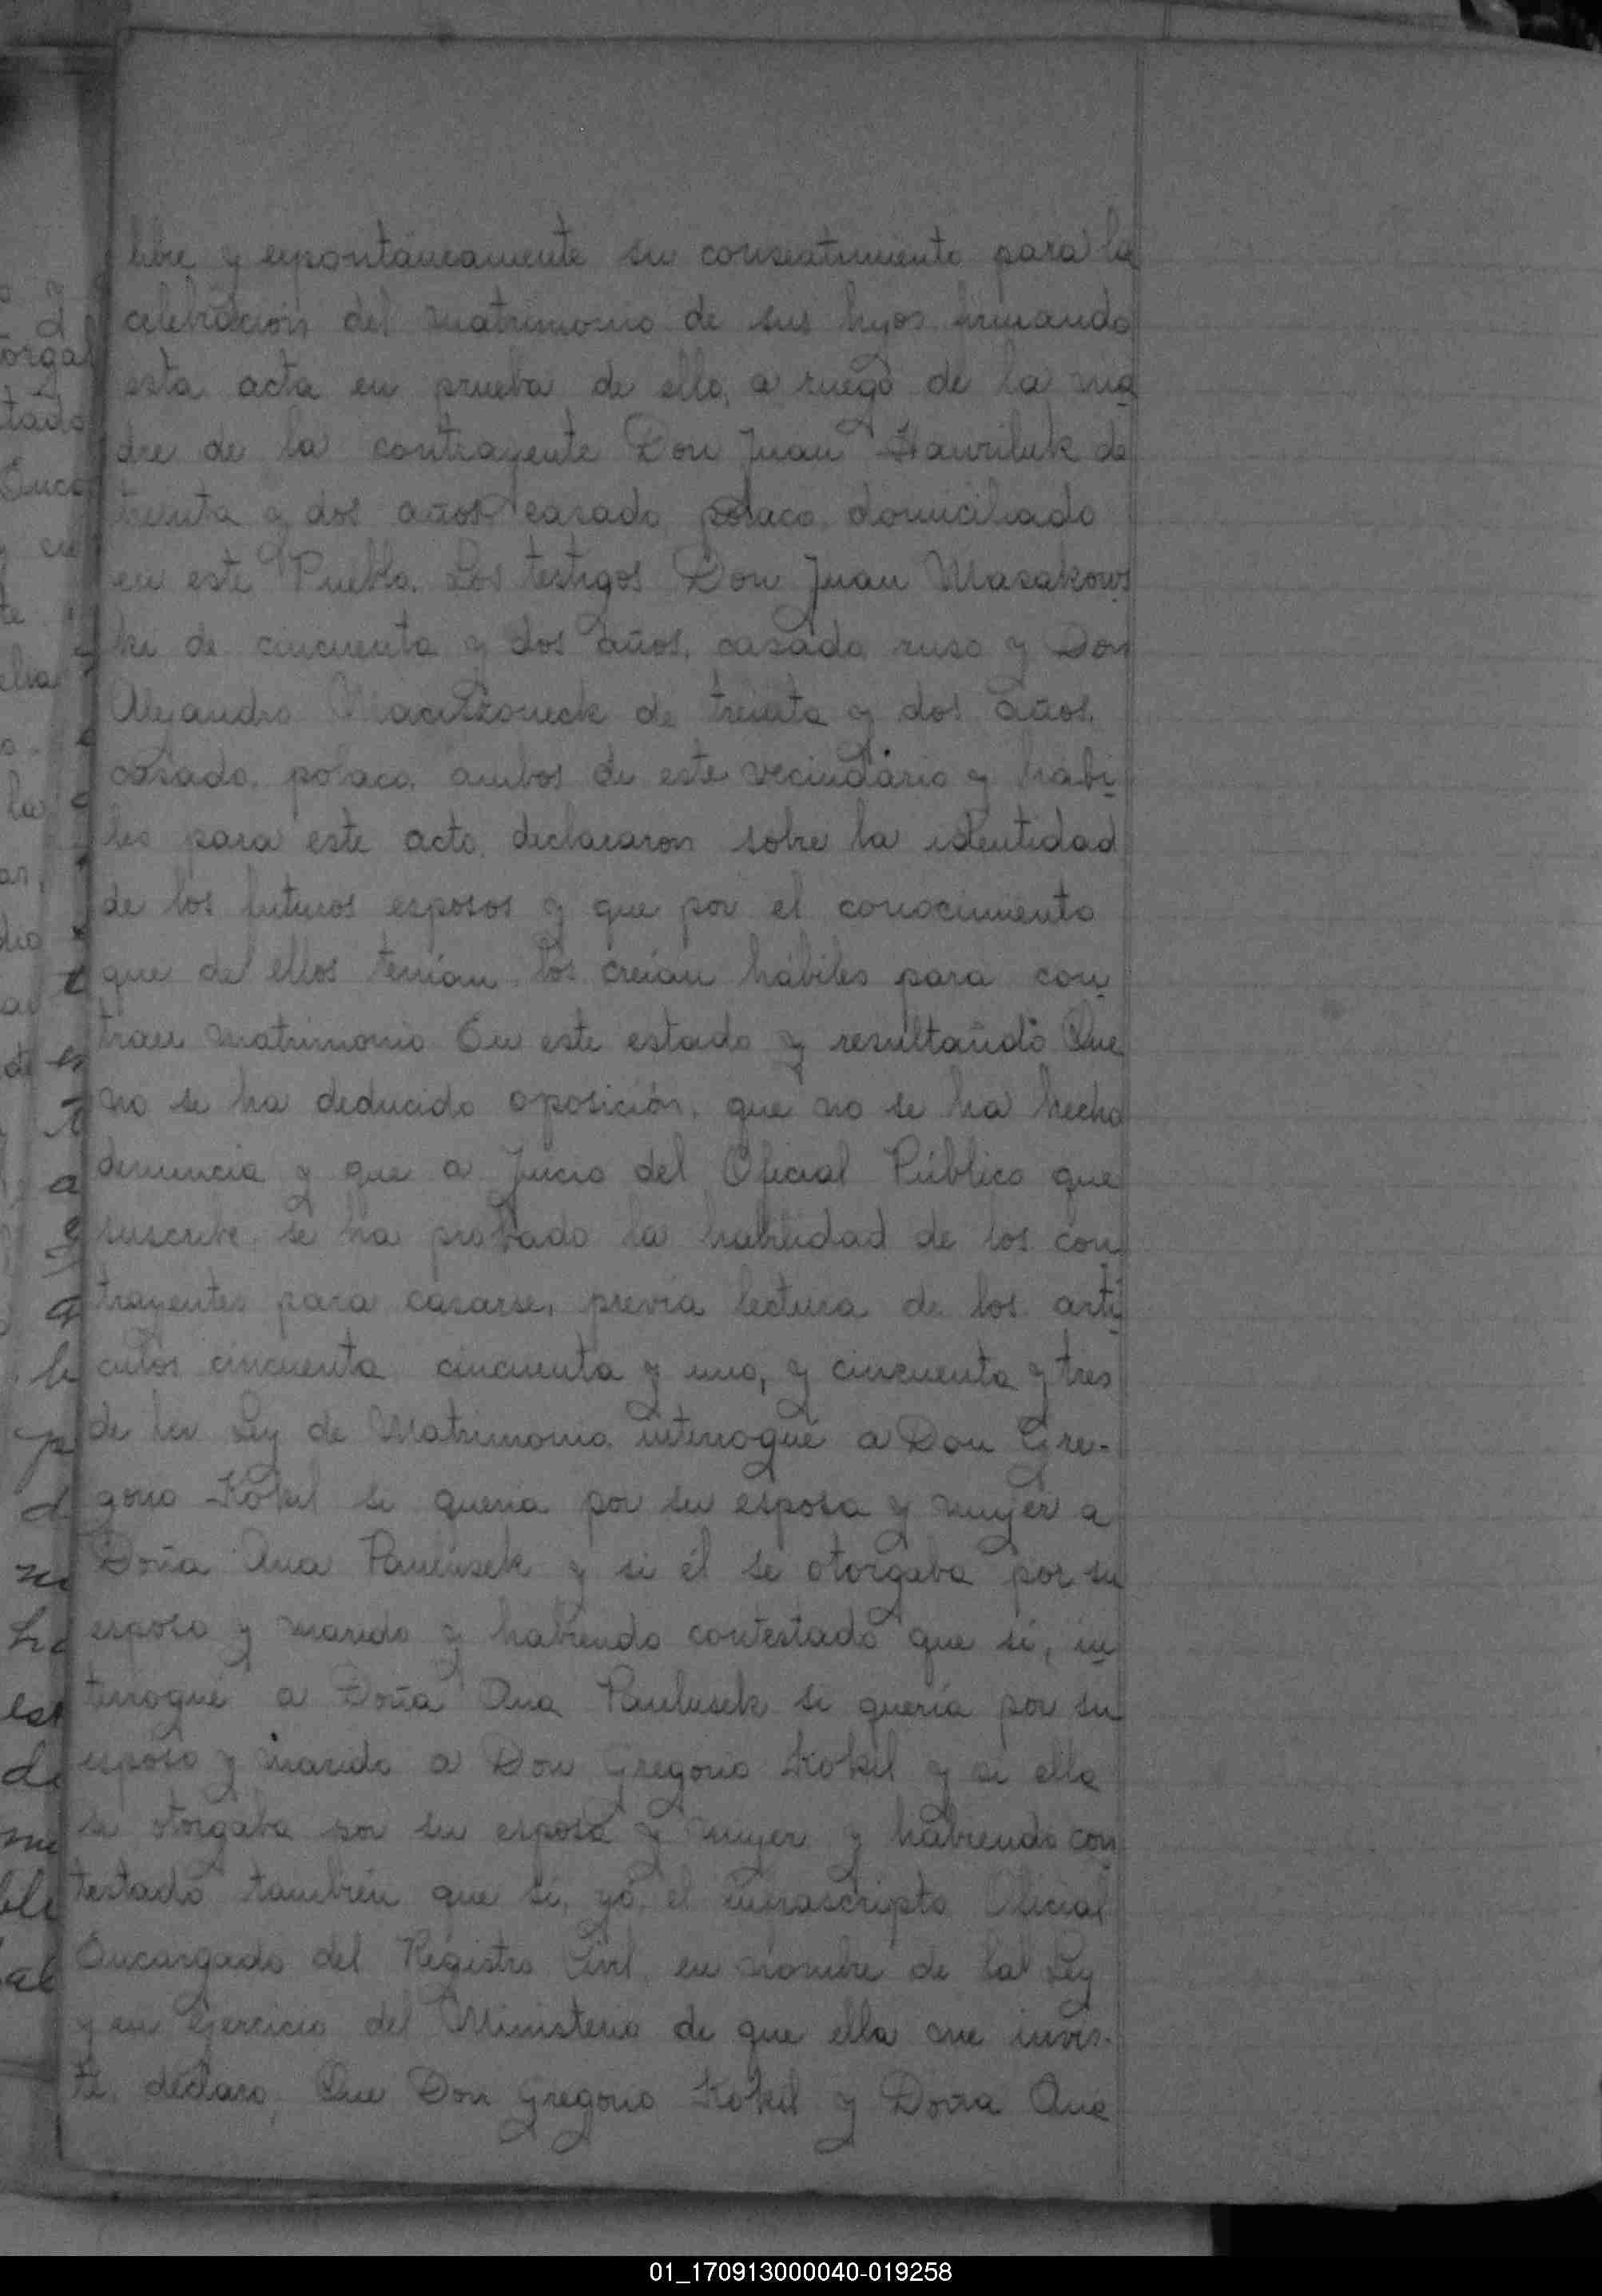 libre y espontáneamente su consentimiento para la
celebración del matrimonio de sus hijos firmando
esta acta en prueba de ello, a ruego de la ma
dre de la contrayente Don Juan Hawriluk de
treinta y dos años casado, polaco, domiciliado
en este Pueblo. Los testigos Don Juan Masakows
ki de cincuenta y dos años, casado, ruso y Don
Alejandro de treinta y dos años,
casado, polaco, ambos de este vecindario y habi
les para este acto, declararon sobre la identidad
de los futuros esposos y que por el conocimiento
que de ellos tenían los creían hábiles para con
traer matrimonio En este estado y resultando Que
no se ha deducido oposición, que no se ha hecho
denuncia y que a juicio del Oficial Público que
suscribe se ha probado la habilidad de los con
trayentes para casarse, previa lectura de los artí
culos cincuenta cincuenta y uno, y cincuenta y tres
de la Ley de Matrimonio interrogué a Don Gre-
gorio Kokil si quería por su esposa y mujer a
Doña Ana Paulusek y si él se otorgaba por su
esposo y marido y habiendo contestado que sí, in
terrogué a Doña Ana Paulusek si quería por su
esposo y marido a Don Gregorio Kokil y si ella
se otorgaba por su esposa y mujer y habiendo con
testado también que sí, yó, el infrascripto Oficial
Encargado del Registro Civil, en nombre de la Ley
y en Ejercicio del Ministerio de que ella me invis-
te, declaro, Que Don Gregorio Kokil y Doña Ana
01_170913000040-019258